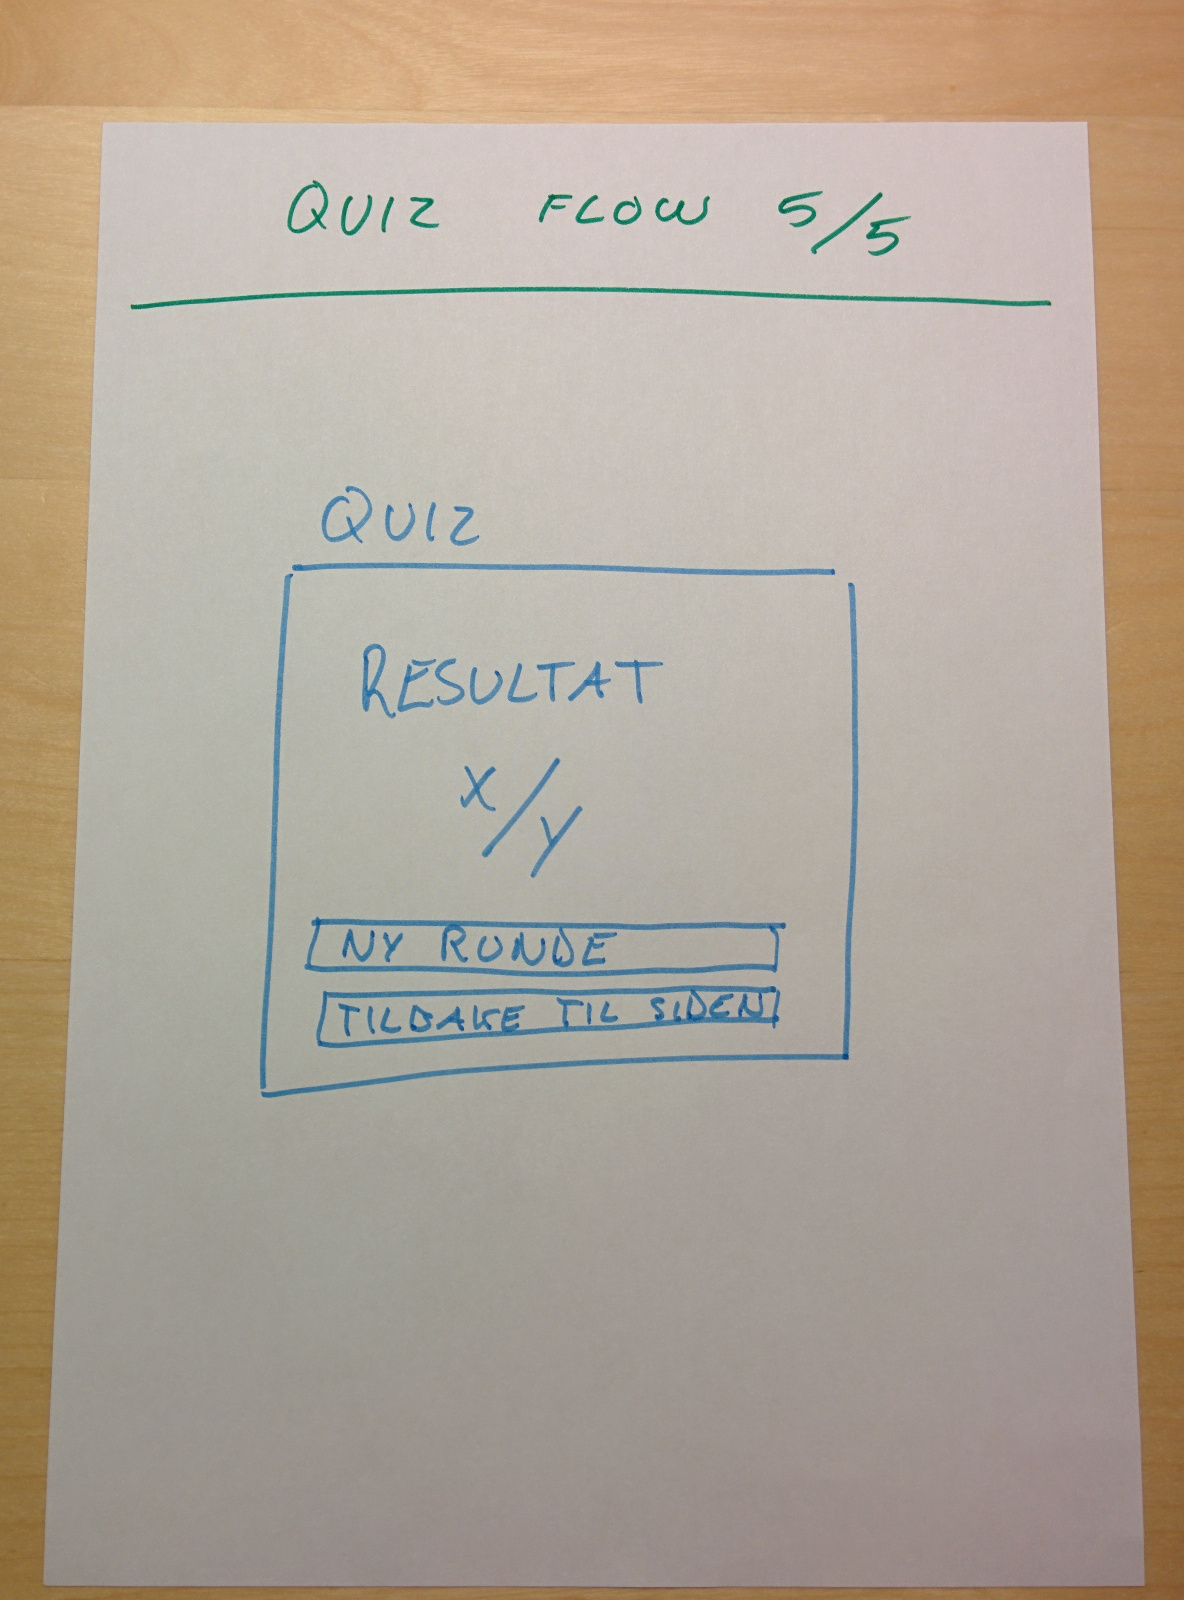 QUIZ FLOW 5/5
QUIZ
RESULTAT
X/Y
NY RUNDE
TILBAKE TIL SIDEN